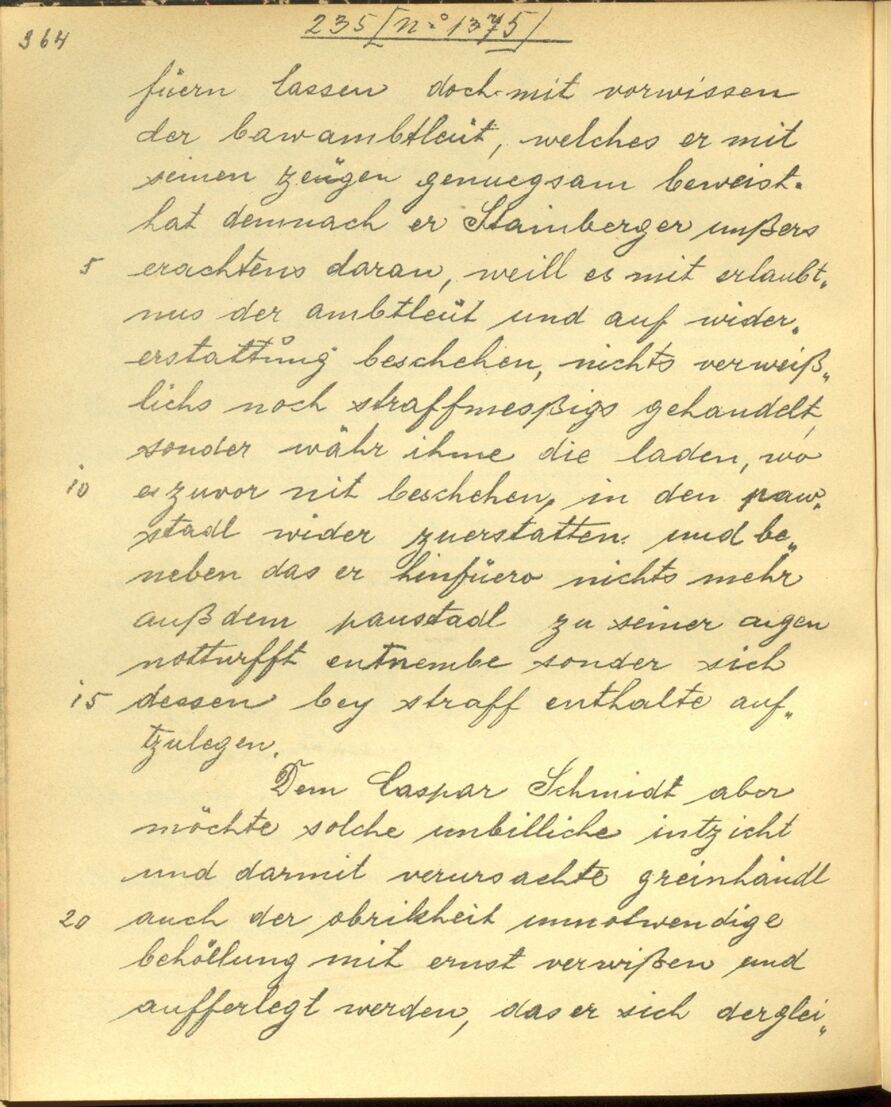 364
235 [n.º 1375]
füern lassen doch mit vorwissen
der bawambtleüt, welches er mit
seinen zeügen genuegsam beweist.
hat demnach er Stainberger unßers
5 erachtens daran, weill es mit erlaubt„
nus der ambtleüt und auf wider„
erstattůng beschehen, nichts verweiß„
lichs noch straffmeßigs gehandelt,
sonder währ ihme die laden, wo
10 es zuvor nit beschehen, in den paw„
stadl wider zuerstatten und be„
neben das er hinfüero nichts mehr
außdem paustadl zu seiner aigen
notturfft entnembe sonder sich
15 dessen bey straff enthalte auf„
tzulegen.
Dem Caspar Schmidt aber
möchte solche unbilliche intzicht
und darmit verursachte greinhändl
20 auch der obrikheit unnotwendige
behöllung mit ernst verwißen und
aufferlegt werden, das er sich derglei„